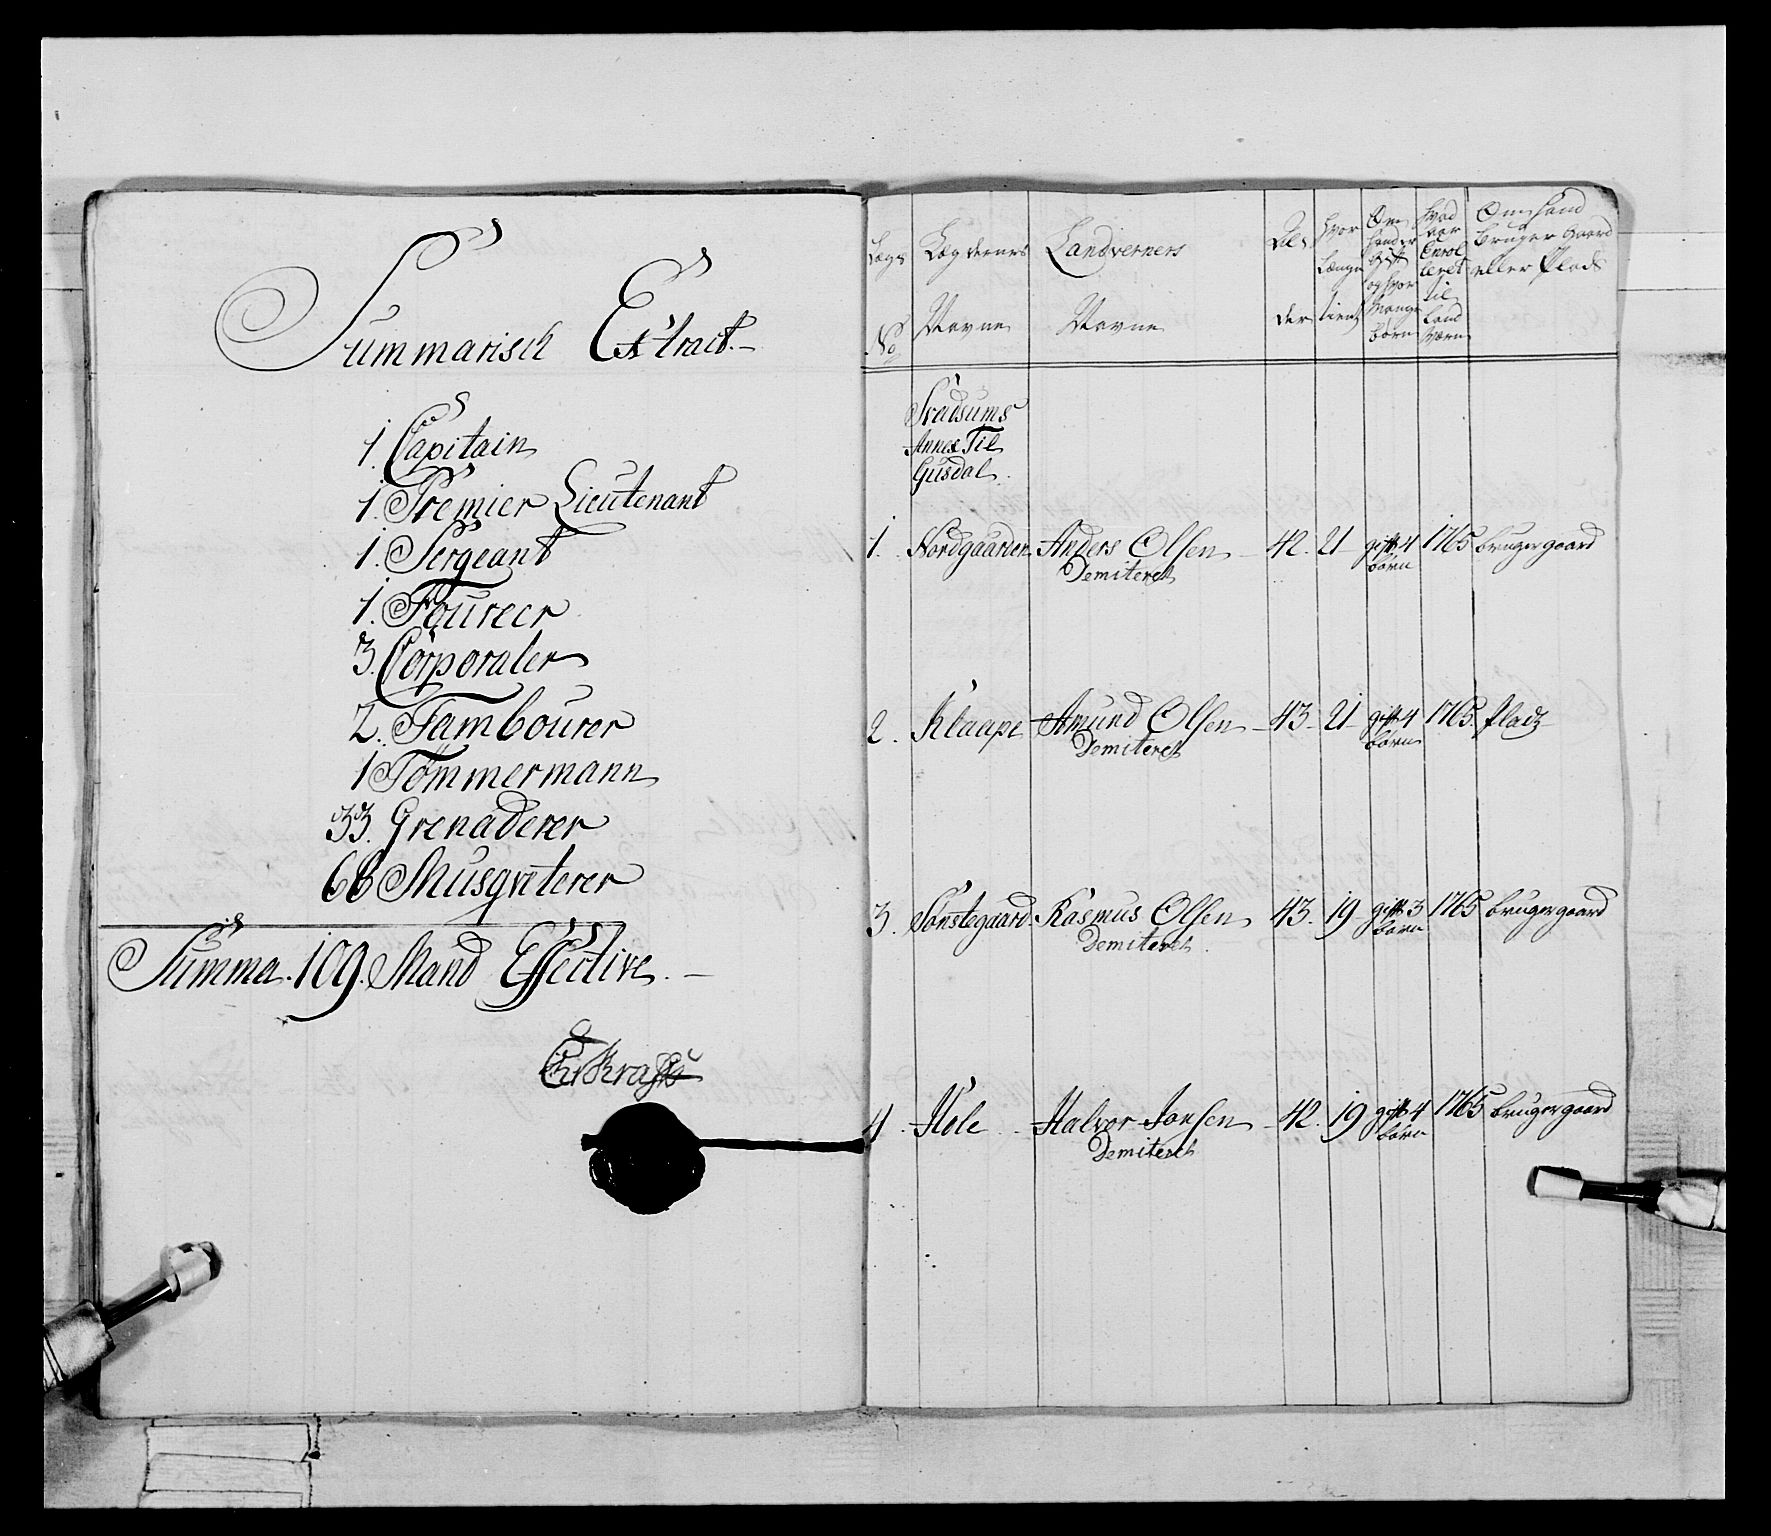 Summarisch Extract.
1. Capitain
1. Premier Lieutenant
1. Sergeant
1. Foureer
3. Corporaler
2. Tambourer
1 Tømmermann
33. Grenaderer
66 Musqveterer
Summa. 109. Mand Effective.
Lægs Lægdernes Landverners Al= hvor Om hvad Om hand
No Navne Navne der længe tient hand er gift og hvor mange børn aar Enrolleret til Land Værn bruger gaard eller Plads
Svadsums
Annex Til
Gusdal.
1. Nordgaarden Anders Olsen 42. 21 gift 4 1765 bruger gaard
Demiteret børn
2. Klaape Amund Olsen 43. 21 gift 4 1765. Plads
Demiteret børn
3. Sønstegaard Rasmus Olsen 43. 19 gift 3 1765 bruger gaard
Demiteret børn
4. Hole Halvor Jonsen 42. 19 gift 4 1765 bruger gaard
Demiteret børn